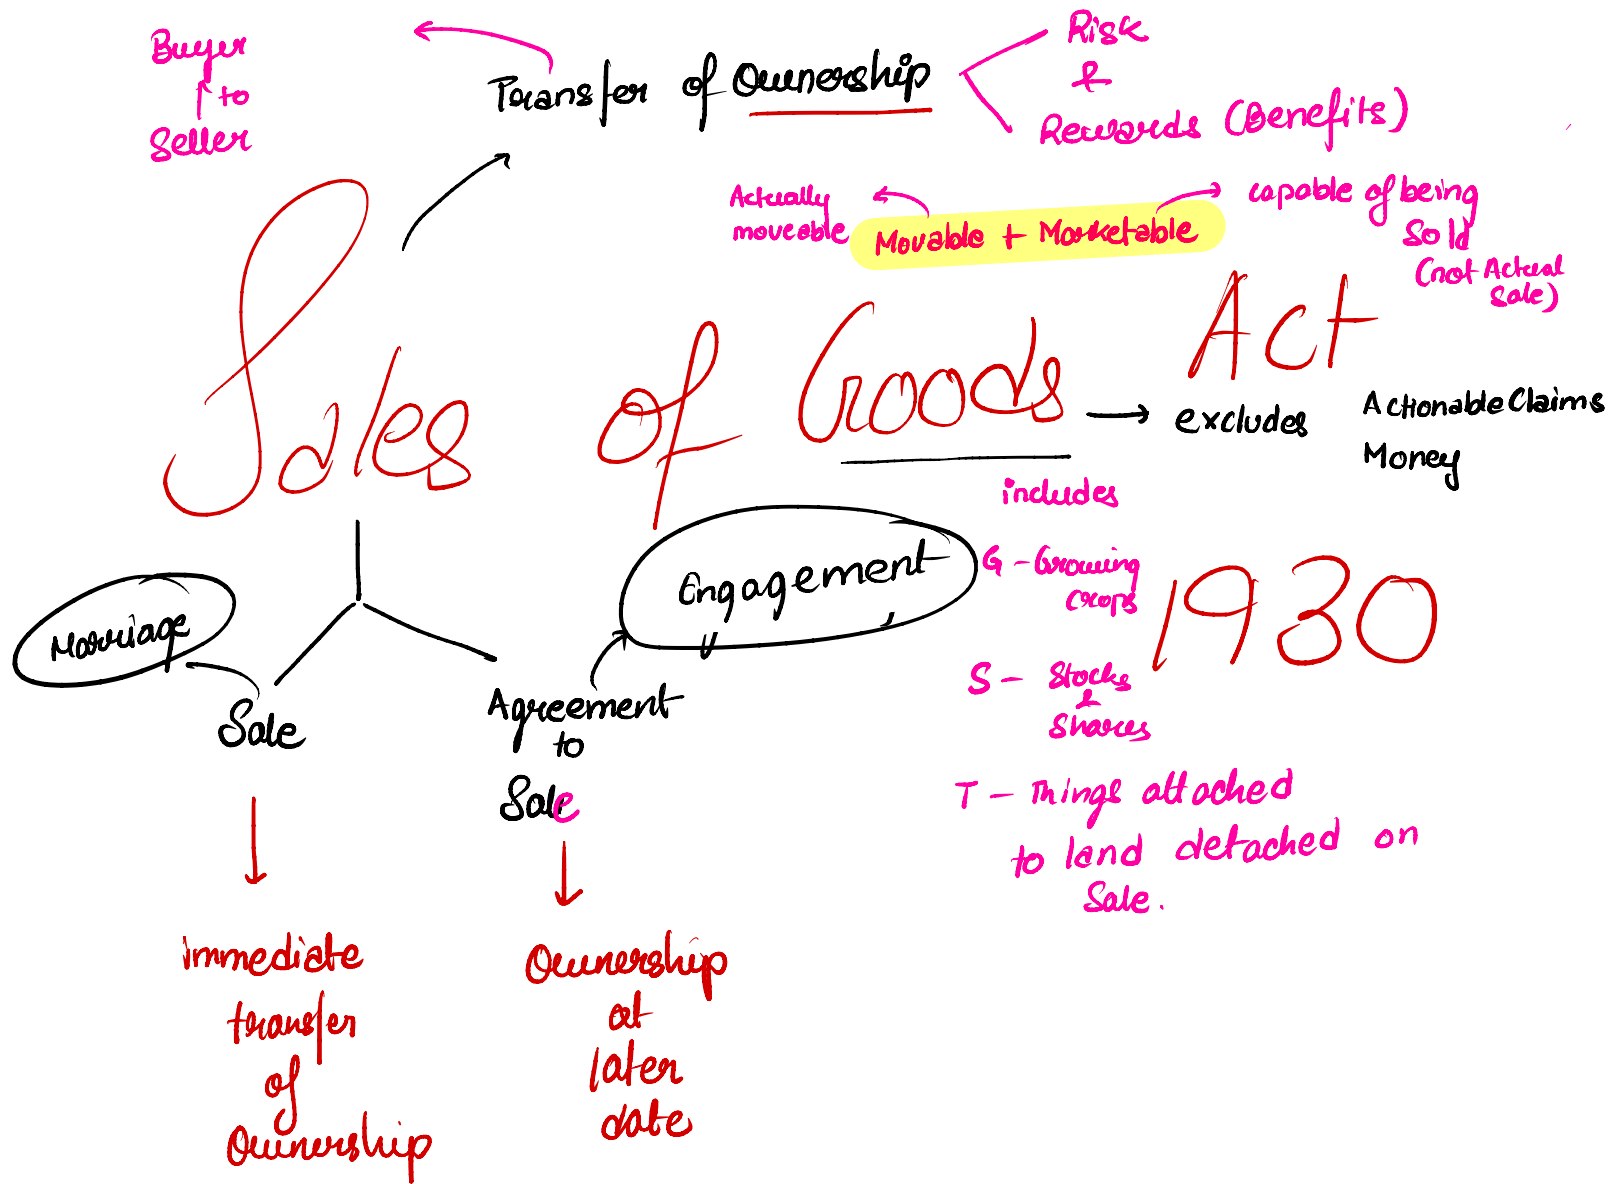 Buyer
to
Seller
Transfer of Ownership
Risk
&
Rewards (Benefits)
Actually
moveable
Movable + Marketable
capable of being
Sold
(not Actual
Sale)
Sales of Goods Act
1930
excludes
Actionable Claims
Money
includes
G - Growing
crops
S - Stocks
&
Shares
T - Things attached
to land detached on
Sale.
Marriage
Engagement
Sale
Agreement
to
Sale
immediate
transfer
of
Ownership
Ownership
at
later
date